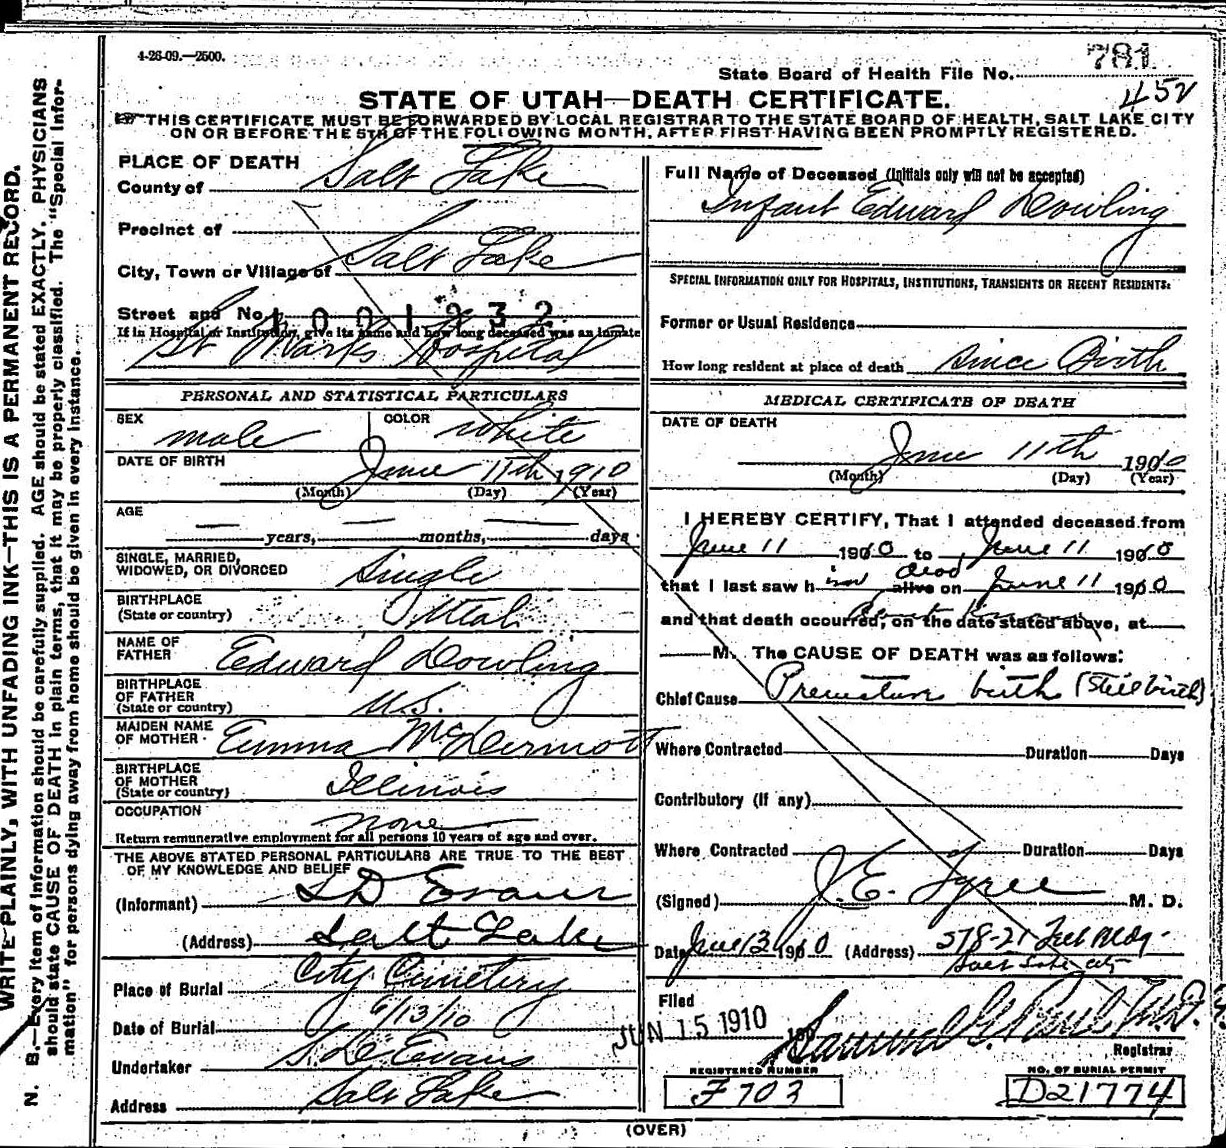 4-26-09.—2500.
781
State Board of Health File No.
452
STATE OF UTAH—DEATH CERTIFICATE.
THIS CERTIFICATE MUST BE FORWARDED BY LOCAL REGISTRAR TO THE STATE BOARD OF HEALTH, SALT LAKE CITY
ON OR BEFORE THE 5TH OF THE FOLLOWING MONTH, AFTER FIRST HAVING BEEN PROMPTLY REGISTERED.
WRITE PLAINLY, WITH UNFADING INK—THIS IS A PERMANENT RECORD.
N. B.—Every item of information should be carefully supplied. AGE should be stated EXACTLY. PHYSICIANS
should state CAUSE OF DEATH in plain terms, that it may be properly classified. The "Special Infor-
mation" for persons dying away from home should be given in every instance.
PLACE OF DEATH
County of Salt Lake
Precinct of
City, Town or Village of Salt Lake
Street and No. 1001232
If in Hospital or Institution, give its name and how long deceased was an inmate
St Marks Hospital
PERSONAL AND STATISTICAL PARTICULARS
SEX male COLOR White
DATE OF BIRTH June 11th 1910
(Month) (Day) (Year)
AGE
— years, — months, — days
SINGLE, MARRIED,
WIDOWED, OR DIVORCED Single
BIRTHPLACE
(State or country) Utah
NAME OF
FATHER Edward Dowling
BIRTHPLACE
OF FATHER
(State or country) U.S.
MAIDEN NAME
OF MOTHER Emma McDermott
BIRTHPLACE
OF MOTHER
(State or country) Illinois
OCCUPATION none
Return remunerative employment for all persons 10 years of age and over.
THE ABOVE STATED PERSONAL PARTICULARS ARE TRUE TO THE BEST
OF MY KNOWLEDGE AND BELIEF
(Informant) S D Evans
(Address) Salt Lake
Place of Burial City Cemetery
Date of Burial 6/13/10
Undertaker S. D. Evans
Address Salt Lake
Full Name of Deceased (Initials only will not be accepted)
Infant Edward Dowling
SPECIAL INFORMATION ONLY FOR HOSPITALS, INSTITUTIONS, TRANSIENTS OR RECENT RESIDENTS:
Former or Usual Residence
How long resident at place of death Since Birth
MEDICAL CERTIFICATE OF DEATH
DATE OF DEATH
June 11th 1910
(Month) (Day) (Year)
I HEREBY CERTIFY, That I attended deceased from
June 11 1910 to June 11 1910
that I last saw him dead alive on June 11 1910
and that death occurred, on the date stated above, at
— M. The CAUSE OF DEATH was as follows:
Chief Cause Premature birth (Still birth)
Where Contracted Duration Days
Contributory (if any)
Where Contracted Duration Days
(Signed) J. E. Tyree M. D.
Date June 13 1910 (Address) 518-21 Felt Bldg.
Salt Lake City
Filed
JUN 15 1910 190
Samuel G. Paul M.D.
Registrar
REGISTERED NUMBER
F 703
NO. OF BURIAL PERMIT
D21774
(OVER)